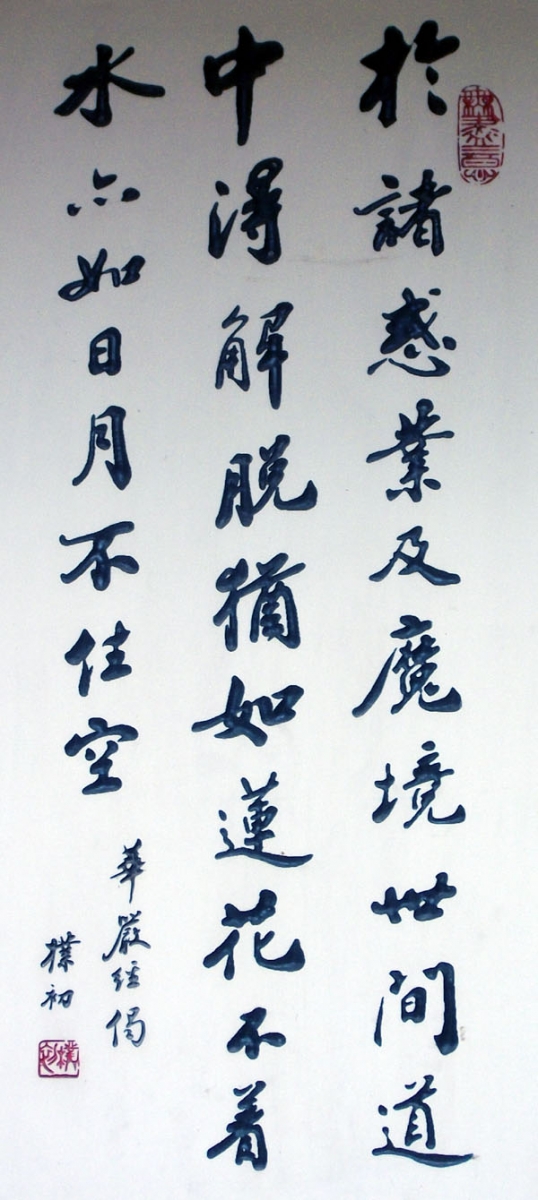 於諸惑業及魔境世間道
中得解脱猶如蓮花不着
水亦如日月不住空
華嚴經偈
樸初
樸初